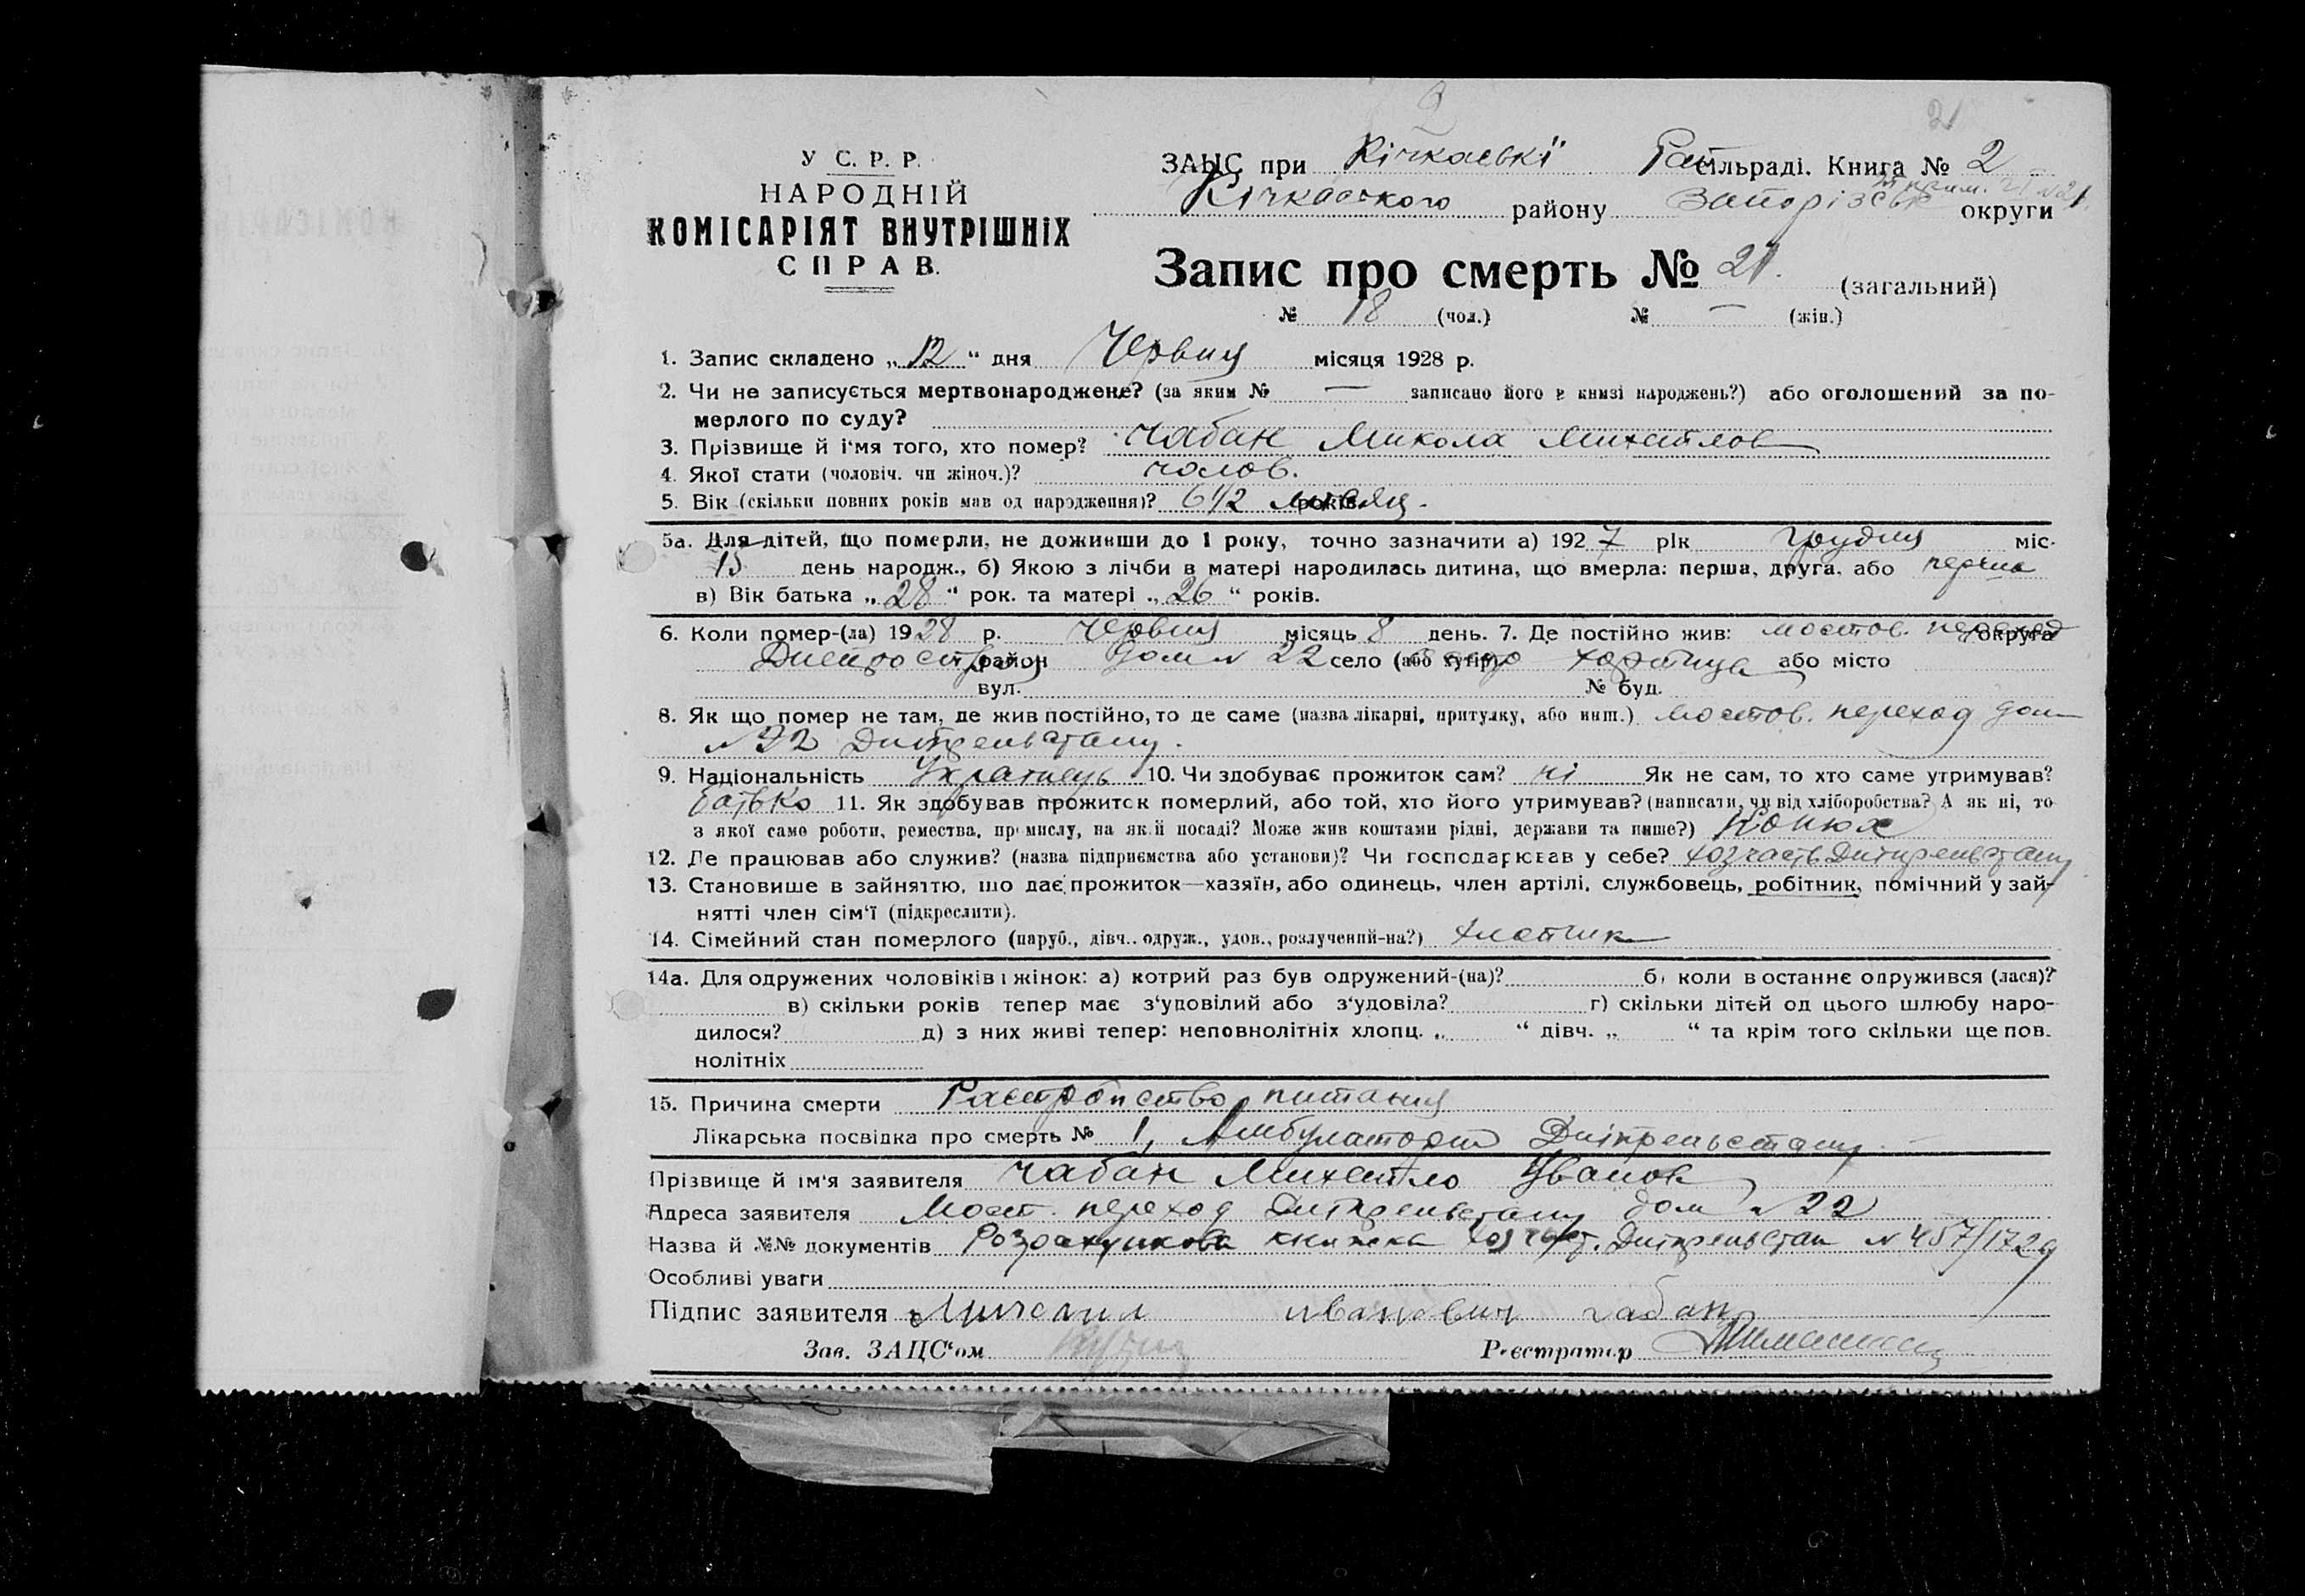 21
У С. Р. Р.
НАРОДНІЙ
КОМІСАРІЯТ ВНУТРІШНІХ
СПРАВ.
ЗАЦС при Кічкаські сільраді. Книга № 2
Кічкаского району Запорізськ округи
Запис про смерть № 21. (загальний)
№ 18 (чол.) № — (жін.)
1. Запис складено „12“ дня Червня місяця 1928 р.
2. Чи не записується мертвонароджене? (за яким № — записано його в книзі народжень?) або оголошений за по-
мерлого по суду?
3. Прізвище й і'мя того, хто помер? Чабан Микола Михайлов
4. Якої стати (чоловіч. чи жіноч.)? чолов.
5. Вік (скільки повних років мав од народження)? 6 1/2 місяц. років
5а. Для дітей, що померли, не доживши до 1 року, точно зазначити а) 1927 рік грудня міс.
15 день народж., б) Якою з лічби в матері народилась дитина, що вмерла: перша, друга, або перша
в) Вік батька „28“ рок. та матері „26“ років.
6. Коли помер-(ла) 1928 р. Червня місяць 8 день. 7. Де постійно жив: мостов. переход округа
Днепростроя район дом № 22 село (або хутір) Хортица або місто
вул. № буд.
8. Як що помер не там, де жив постійно, то де саме (назва лікарні, притулку, або инш.) мостов. переход дом
№ 22 Дніпрельстану.
9. Національність Українець 10. Чи здобуває прожиток сам? ні Як не сам, то хто саме утримував?
батько 11. Як здобував прожиток померлий, або той, хто його утримував? (написати, чи від хліборобства? А як ні, то
з якої саме роботи, ремества, промислу, на якій посаді? Може жив коштами рідні, держави та инше?) Конюх
12. Де працював або служив? (назва підприємства або установи)? Чи господарював у себе? хозчасть Дніпрельстану
13. Становище в зайняттю, що дає прожиток—хазяїн, або одинець, член артілі, службовець, робітник, помічний у зай-
нятті член сім'ї (підкреслити).
14. Сімейний стан померлого (паруб., дівч., одруж., удов., розлучений-на?) хлопчик
14а. Для одружених чоловіків і жінок: а) котрий раз був одружений-(на)? б) коли востаннє одружився (лася)?
в) скільки років тепер має з'удовілий або з'удовіла? г) скільки дітей од цього шлюбу наро-
дилося? д) з них живі тепер: неповнолітніх хлопц. „ “ дівч. „ “ та крім того скільки ще пов.
нолітніх
15. Причина смерти Растройство питания
Лікарська посвідка про смерть № 1, Амбулаторії Дніпрельстану.
Прізвище й ім'я заявителя Чабан Михайло Іванов
Адреса заявителя Мост. переход Дніпрельстану дом № 22
Назва й №№ документів Розрахункова книжка Хозчаст. Дніпрельстан № 457/1729
Особливі уваги
Підпис заявителя Михаил Иванович Чабан
Зав. ЗАЦС'ом Реєстратор